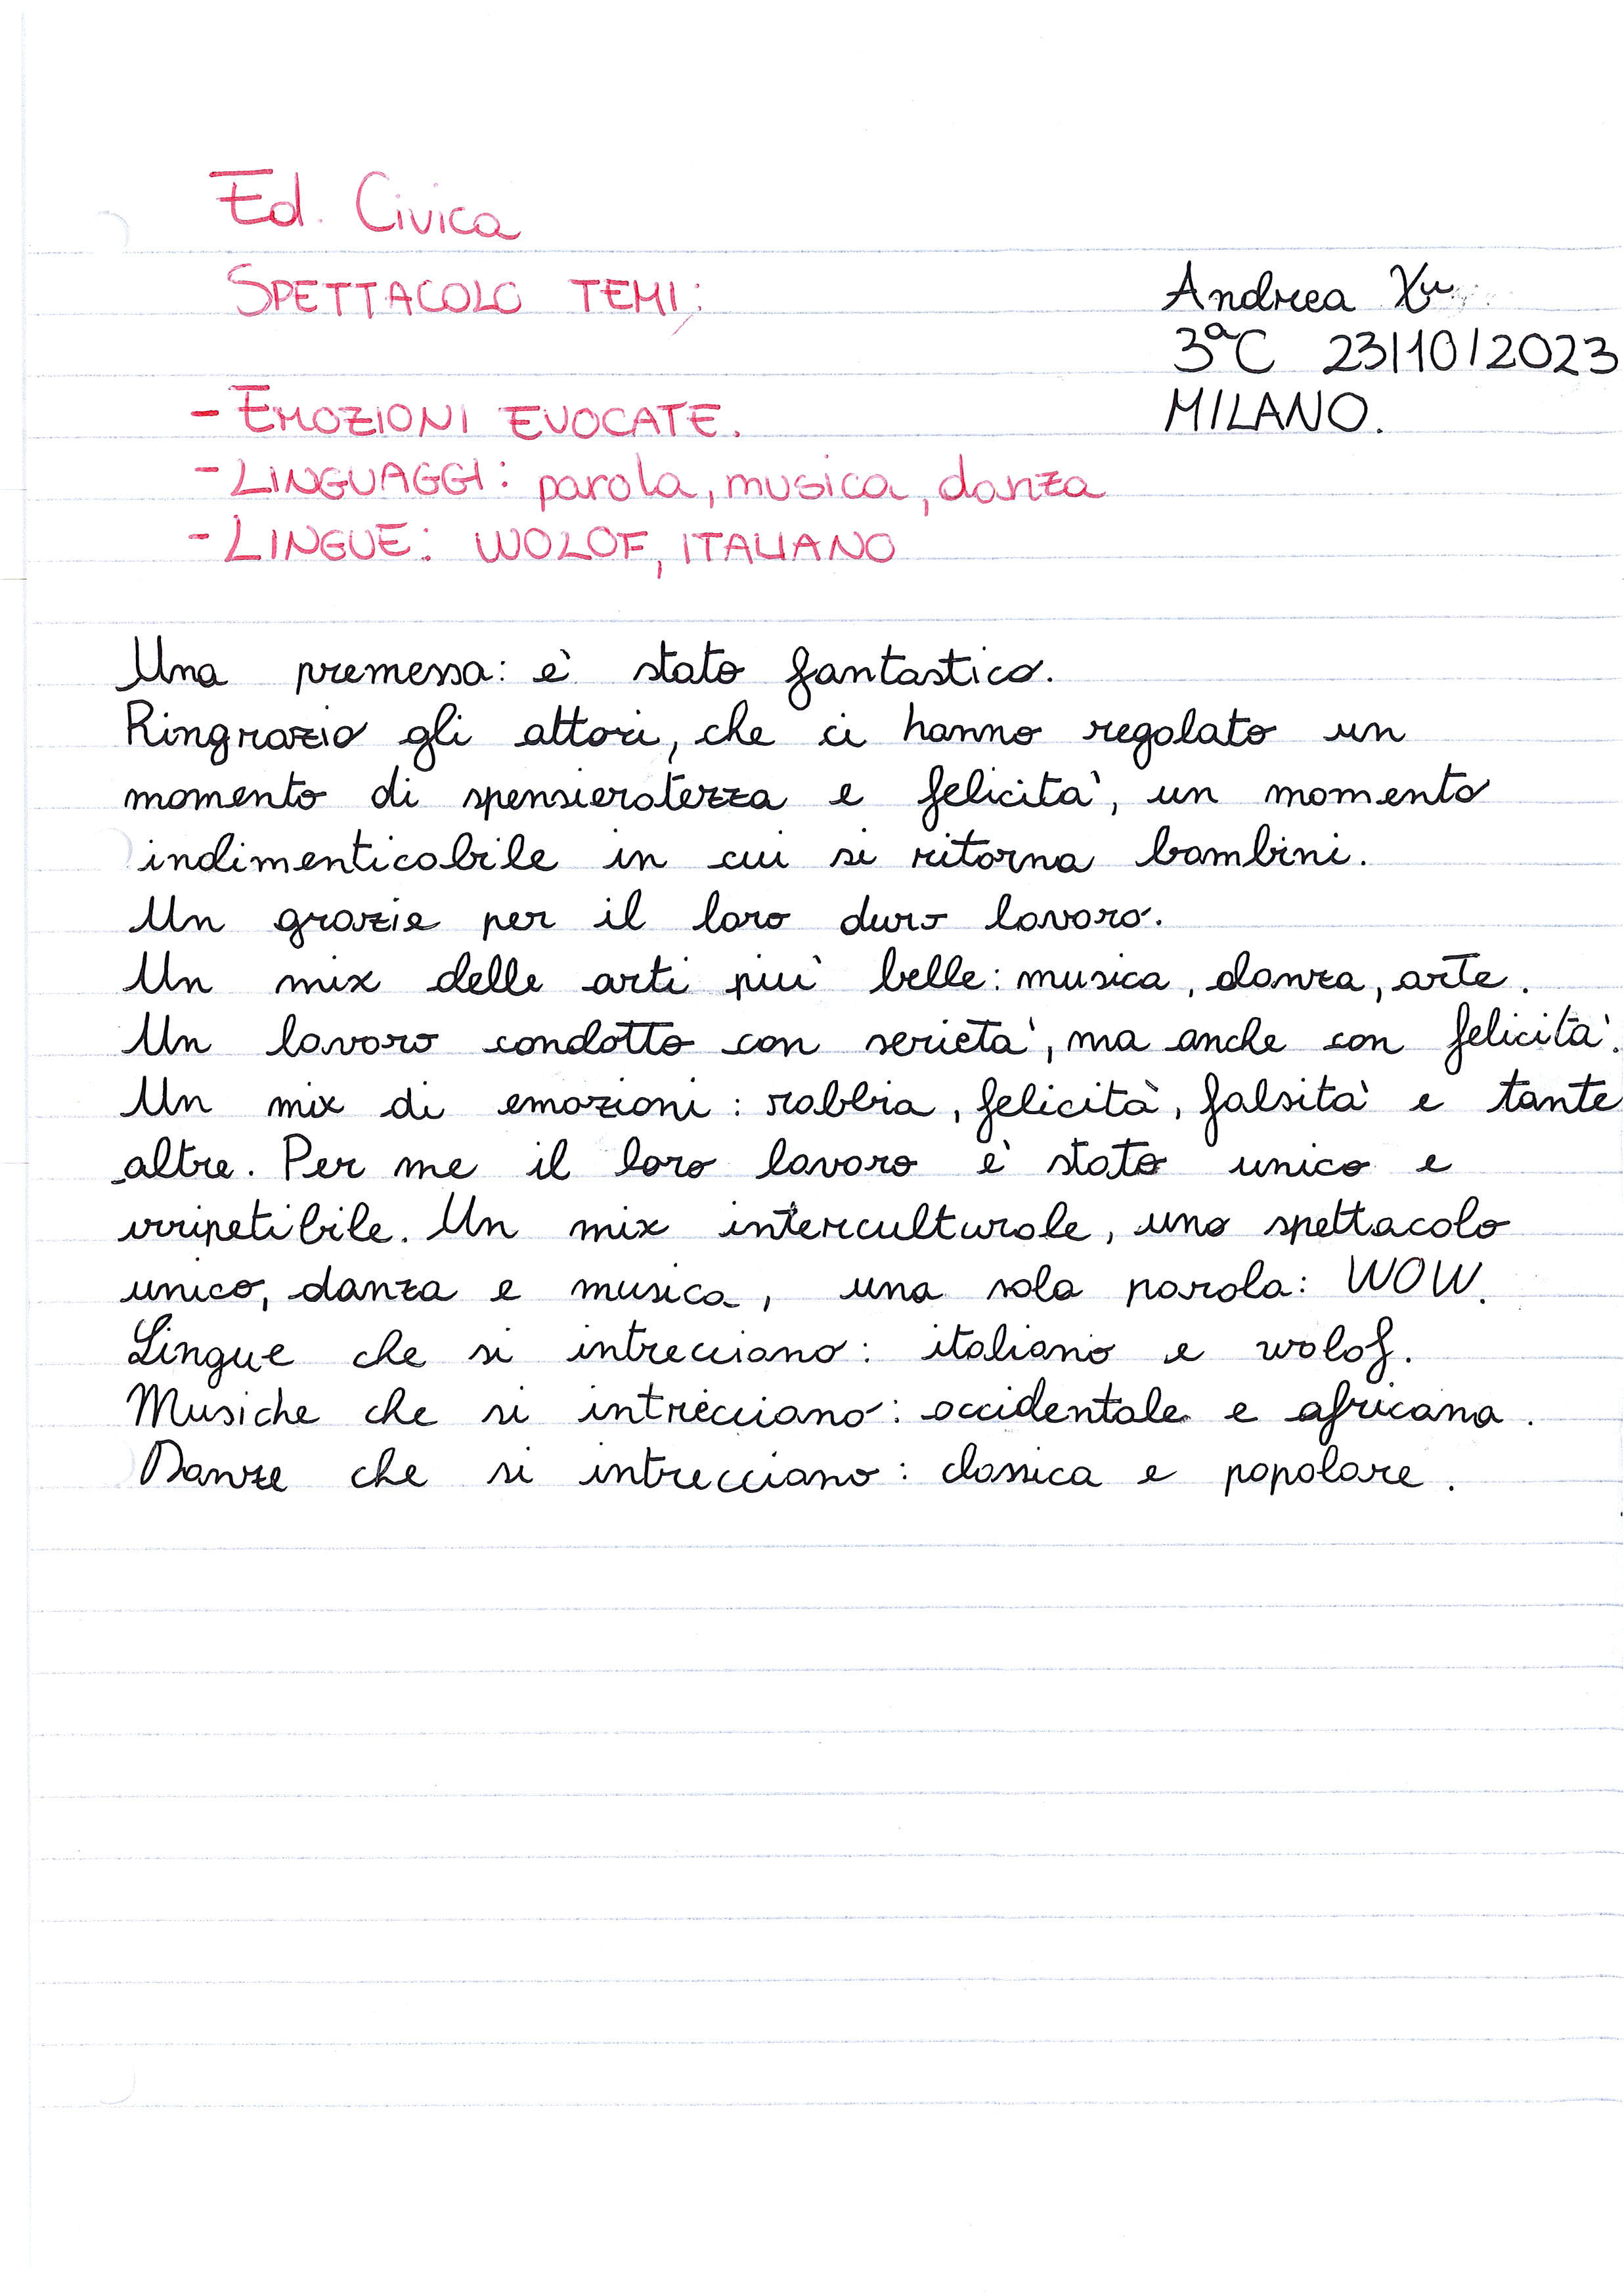 Ed. Civica
SPETTACOLO TEMI:
Andrea Xu
3ªC 23/10/2023
MILANO.
- EMOZIONI EVOCATE.
- LINGUAGGI: parola, musica, danza
- LINGUE: WOLOF, ITALIANO
Una premessa: è stato fantastico.
Ringrazio gli attori, che ci hanno regalato un
momento di spensieratezza e felicità, un momento
indimenticabile in cui si ritorna bambini.
Un grazie per il loro duro lavoro.
Un mix delle arti più belle: musica, danza, arte.
Un lavoro condotto con serietà, ma anche con felicità.
Un mix di emozioni: rabbia, felicità, falsità e tante
altre. Per me il loro lavoro è stato unico e
irripetibile. Un mix interculturale, uno spettacolo
unico, danza e musica, una sola parola: WOW.
Lingue che si intrecciano: italiano e wolof.
Musiche che si intrecciano: occidentale e africana.
Danze che si intrecciano: classica e popolare.